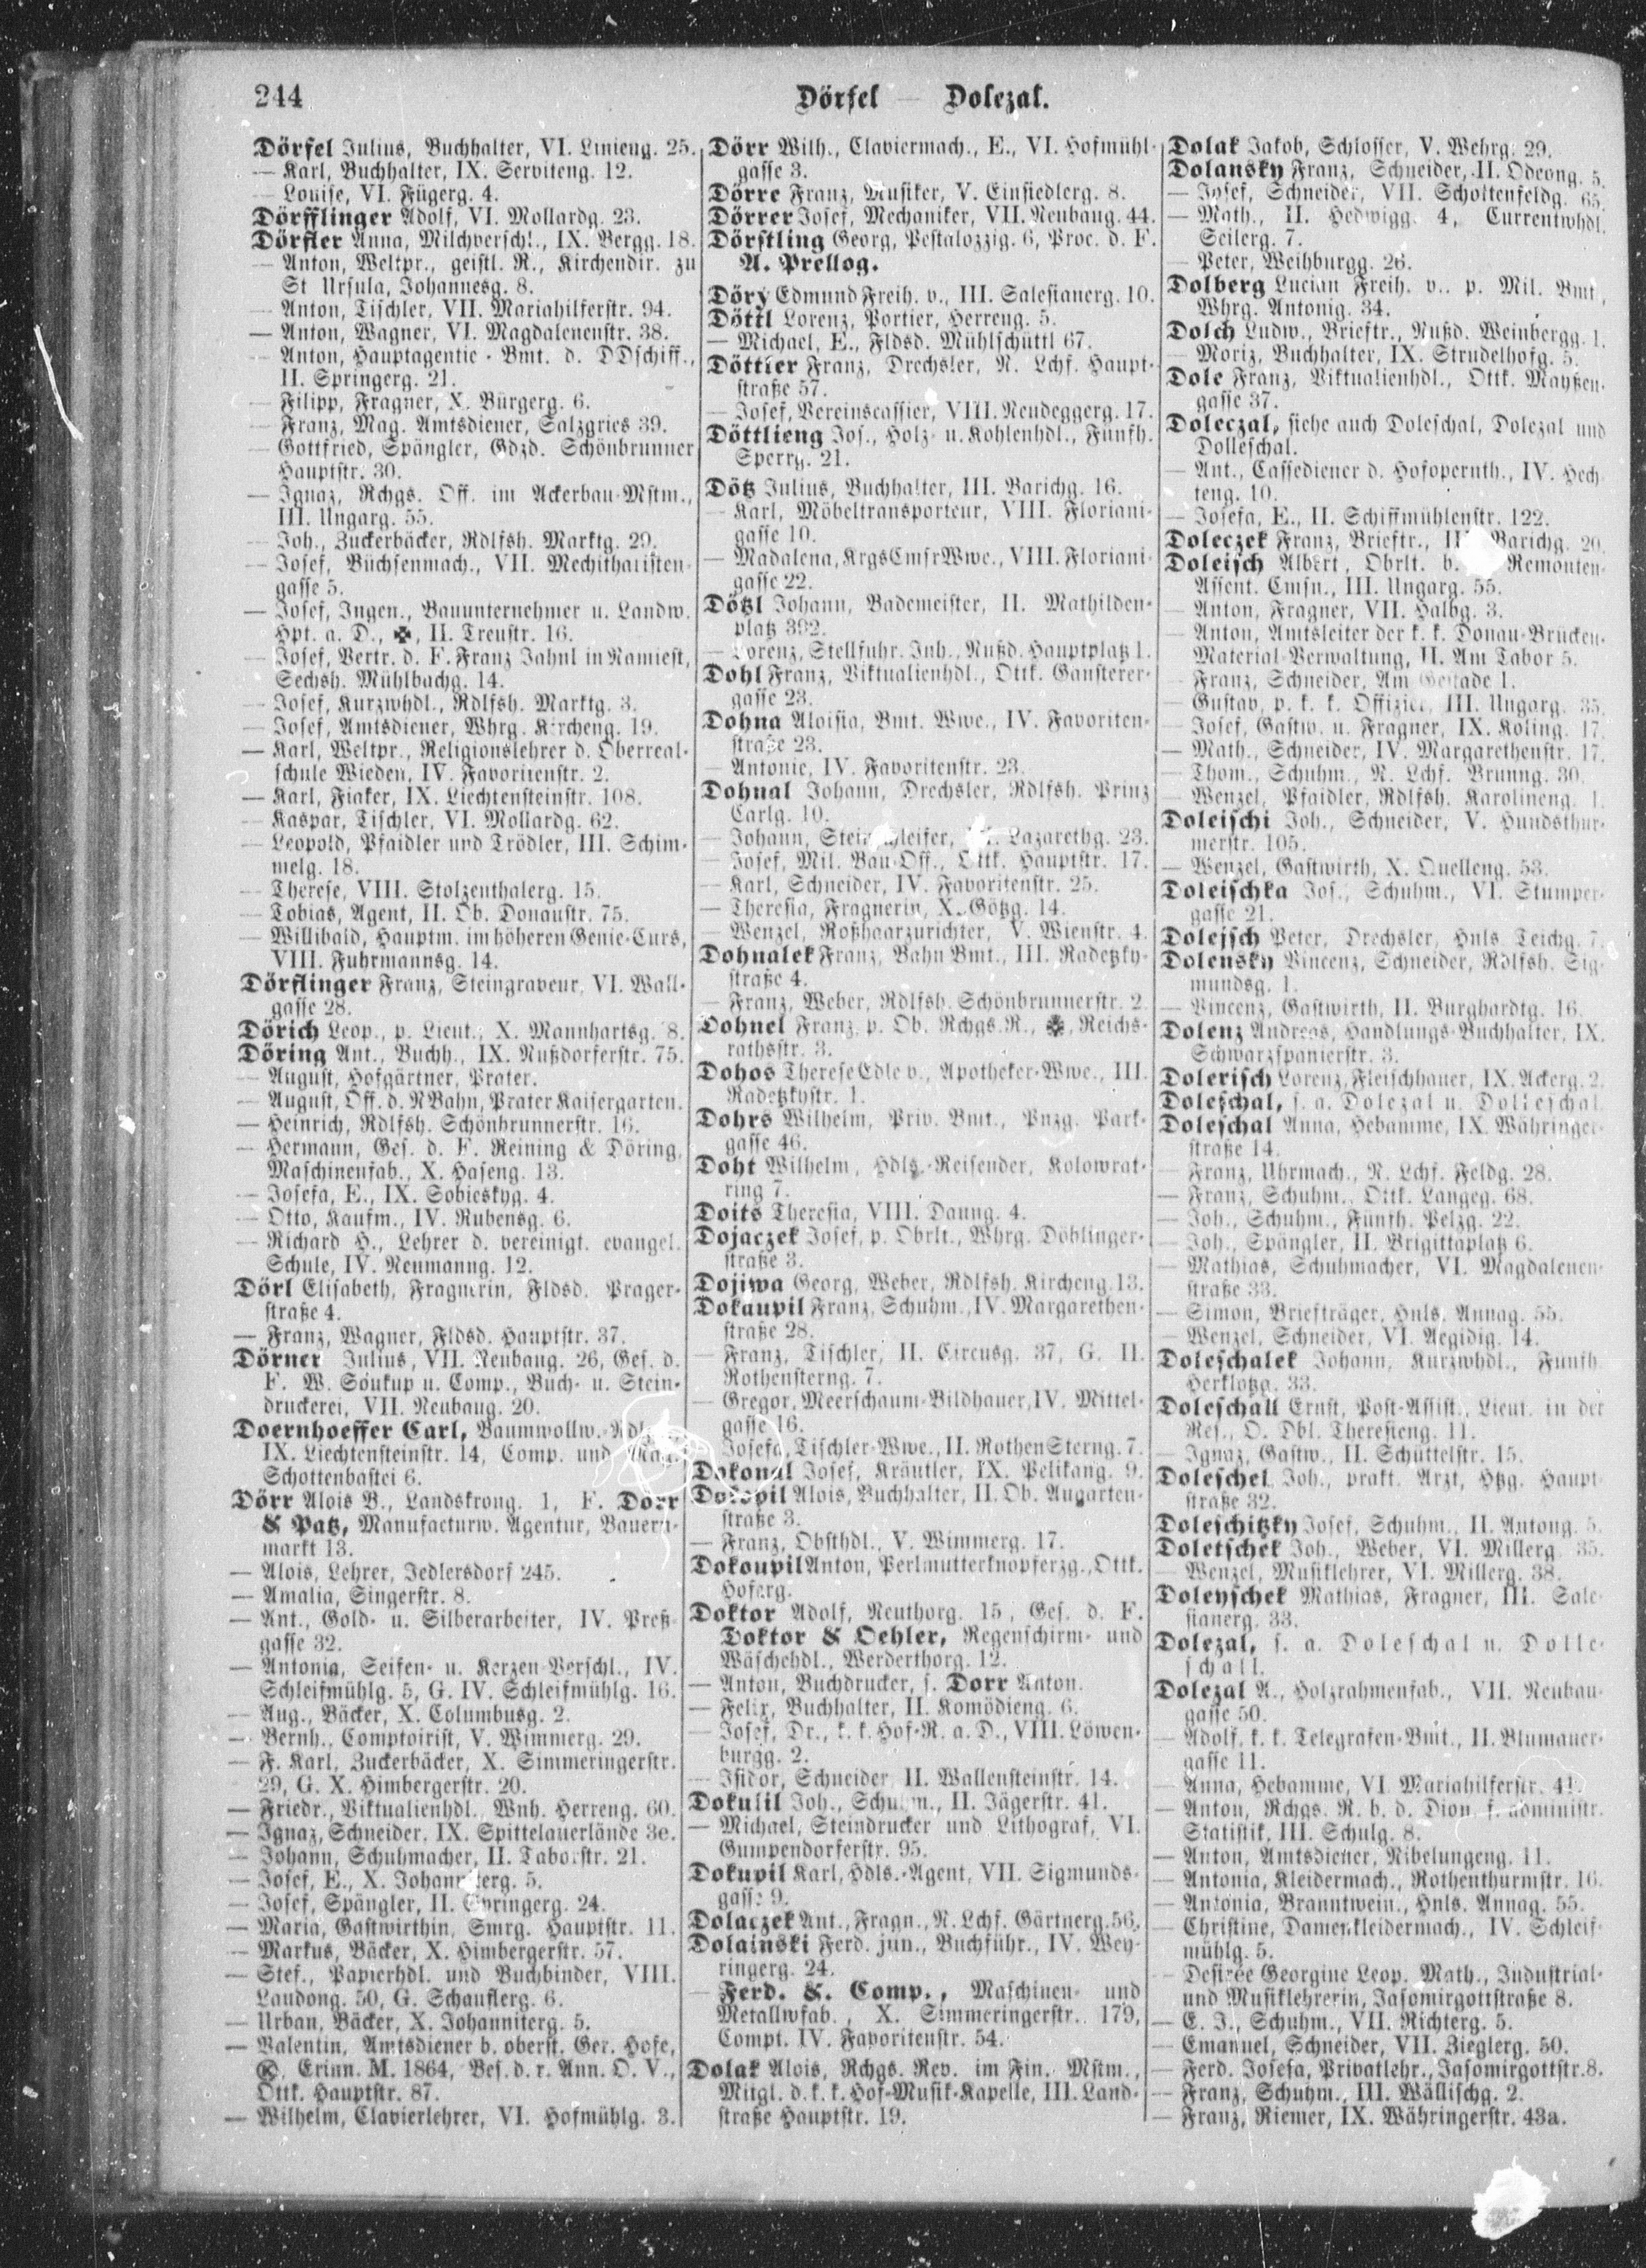 244
Dörfel — Dolezal.
Dörfel Julius, Buchhalter, VI. Linieng. 25.
— Karl, Buchhalter, IX. Serviteng. 12.
— Louise, VI. Fügerg. 4.
Dörfflinger Adolf, VI. Mollardg. 23.
Dörfler Anna, Milchverschl., IX. Bergg. 18.
— Anton, Weltpr., geistl. R., Kirchendir. zu
St Ursula, Johannesg. 8.
— Anton, Tischler, VII. Mariahilferstr. 94.
— Anton, Wagner, VI. Magdalenenstr. 38.
— Anton, Hauptagentie-Bmt. d. DDschiff.,
II. Springerg. 21.
— Filipp, Fragner, X. Bürgerg. 6.
— Franz, Mag. Amtsdiener, Salzgries 39.
— Gottfried, Spängler, Gdzd. Schönbrunner
Hauptstr. 30.
— Ignaz, Rchgs. Off. im Ackerbau-Mstm.,
III. Ungarg. 55.
— Joh., Zuckerbäcker, Rdlfsh. Marktg. 29.
— Josef, Büchsenmach., VII. Mechitharisten-
gasse 5.
— Josef, Ingen., Bauunternehmer u. Landw.
Hpt. a. D., ✠, II. Treustr. 16.
— Josef, Vertr. d. F. Franz Jahnl in Namiest,
Sechsh. Mühlbachg. 14.
— Josef, Kurzwhdl., Rdlfsh. Marktg. 3.
— Josef, Amtsdiener, Whrg. Kircheng. 19.
— Karl, Weltpr., Religionslehrer d. Oberreal-
schule Wieden, IV. Favoritenstr. 2.
— Karl, Fiaker, IX. Liechtensteinstr. 108.
— Kaspar, Tischler, VI. Mollardg. 62.
— Leopold, Pfaidler und Trödler, III. Schim-
melg. 18.
— Therese, VIII. Stolzenthalerg. 15.
— Tobias, Agent, II. Ob. Donaustr. 75.
— Willibald, Hauptm. im höheren Genie-Curs,
VIII. Fuhrmannsg. 14.
Dörflinger Franz, Steingraveur, VI. Wall-
gasse 28.
Dörich Leop., p. Lieut., X. Mannhartsg. 8.
Döring Ant., Buchh., IX. Nußdorferstr. 75.
— August, Hofgärtner, Prater.
— August, Off. d. NBahn, Prater Kaisergarten.
— Heinrich, Rdlfsh. Schönbrunnerstr. 16.
— Hermann, Ges. d. F. Reining & Döring,
Maschinenfab., X. Haseng. 13.
— Josefa, E., IX. Sobieskyg. 4.
— Otto, Kaufm., IV. Rubensg. 6.
— Richard H., Lehrer d. vereinigt. evangel.
Schule, IV. Neumanng. 12.
Dörl Elisabeth, Fragnerin, Fldsd. Prager-
straße 4.
— Franz, Wagner, Fldsd. Hauptstr. 37.
Dörner Julius, VII. Neubaug. 26, Ges. d.
F. W. Soukup u. Comp., Buch- u. Stein-
druckerei, VII. Neubaug. 20.
Doernhoeffer Carl, Baumwollw.-
IX. Liechtensteinstr. 14, Comp. und
Schottenbastei 6.
Dörr Alois B., Landskrong. 1, F. Dörr
& Patz, Manufacturw. Agentur, Bauern-
markt 13.
— Alois, Lehrer, Jedlersdorf 245.
— Amalia, Singerstr. 8.
— Ant., Gold- u. Silberarbeiter, IV. Preß-
gasse 32.
— Antonia, Seifen- u. Kerzen-Verschl., IV.
Schleifmühlg. 5, G. IV. Schleifmühlg. 16.
— Aug., Bäcker, X. Columbusg. 2.
— Bernh., Comptoirist, V. Wimmerg. 29.
— F. Karl, Zuckerbäcker, X. Simmeringerstr.
29, G. X. Himbergerstr. 20.
— Friedr., Viktualienhdl. Wnh. Herreng. 60.
— Ignaz, Schneider, IX. Spittelauerlände 3e.
— Johann, Schuhmacher, II. Taborstr. 21.
— Josef, E., X. Johanniterg. 5.
— Josef, Spängler, II. Springerg. 24.
— Maria, Gastwirthin, Smrg. Hauptstr. 11.
— Markus, Bäcker, X. Himbergerstr. 57.
— Stef., Papierhdl. und Buchbinder, VIII.
Laudong. 50, G. Schauflerg. 6.
— Urban, Bäcker, X. Johanniterg. 5.
— Valentin, Amtsdiener b. oberst. Ger. Hofe,
Erinn. M. 1864, Bes. d. r. Ann. O. V.,
Ottk. Hauptstr. 87.
— Wilhelm, Clavierlehrer, VI. Hofmühlg. 3.
Dörr Wilh., Claviermach., E., VI. Hofmühl-
gasse 3.
Dörre Franz, Musiker, V. Einsiedlerg. 8.
Dörrer Josef, Mechaniker, VII. Neubaug. 44.
Dörstling Georg, Pestalozzig. 6, Proc. d. F.
A. Prellog.
Döry Edmund Freih. v., III. Salesianerg. 10.
Döttl Lorenz, Portier, Herreng. 5.
— Michael, E., Fldsd. Mühlschüttl 67.
Döttler Franz, Drechsler, N. Lchf. Haupt-
straße 57.
— Josef, Vereinscassier, VIII. Neudeggerg. 17.
Döttlieng Jos., Holz- u. Kohlenhdl., Fünfh.
Sperrg. 21.
Dötz Julius, Buchhalter, III. Barichg. 16.
— Karl, Möbeltransporteur, VIII. Floriani-
gasse 10.
— Madalena, KrgsCmsrWwe., VIII. Floriani-
gasse 22.
Dötzl Johann, Bademeister, II. Mathilden-
platz 392.
— Lorenz, Stellfuhr. Inh., Nußd. Hauptplatz 1.
Dohl Franz, Viktualienhdl., Ottk. Gansterer-
gasse 23.
Dohna Aloisia, Bmt. Wwe., IV. Favoriten-
straße 23.
— Antonie, IV. Favoritenstr. 23.
Dohnal Johann, Drechsler, Rdlfsh. Prinz
Carlg. 10.
— Johann, Steinschleifer, Lazarethg. 23.
— Josef, Mil. Bau-Off., Ottk. Hauptstr. 17.
— Karl, Schneider, IV. Favoritenstr. 25.
— Theresia, Fragnerin, X. Götzg. 14.
— Wenzel, Roßhaarzurichter, V. Wienstr. 4.
Dohnalek Franz, Bahn Bmt., III. Radetzky-
straße 4.
— Franz, Weber, Rdlfsh. Schönbrunnerstr. 2
Dohnel Franz, p. Ob. Rchgs. R., ✠, Reichs-
rathsstr. 3.
Dohos Therese Edle v., Apotheker-Wwe., III.
Radetzkystr. 1.
Dohrs Wilhelm, Priv. Bmt., Pnzg. Park-
gasse 46.
Doht Wilhelm, Hdls.-Reisender, Kolowrat-
ring 7.
Doits Theresia, VIII. Daung. 4.
Dojaczek Josef, p. Obrlt., Whrg. Döblinger-
straße 3.
Dojiwa Georg, Weber, Rdlfsh. Kircheng. 13.
Dokaupil Franz, Schuhm., IV. Margarethen-
straße 28.
— Franz, Tischler, II. Circusg. 37, G. II.
Rothensterng. 7.
— Gregor, Meerschaum-Bildhauer, IV. Mittel-
gasse 16.
— Josefa, Tischler-Wwe., II. Rothen Sterng. 7.
Dokonal Josef, Kräutler, IX. Pelikang. 9.
Dokopil Alois, Buchhalter, II. Ob. Augarten-
straße 3.
— Franz, Obsthdl., V. Wimmerg. 17.
Dokoupil Anton, Perlmutterknopferzg., Ottk.
Hoferg.
Doktor Adolf, Neuthorg. 15, Ges. d. F.
Doktor & Oehler, Regenschirm- und
Wäschehdl., Werderthorg. 12.
— Anton, Buchdrucker, s. Dorr Anton.
— Felix, Buchhalter, II. Komödieng. 6.
— Josef, Dr., k. k. Hof-R. a. D., VIII. Löwen-
burgg. 2.
— Isidor, Schneider, II. Wallensteinstr. 14.
Dokulil Joh., Schuhm., II. Jägerstr. 41.
— Michael, Steindrucker und Lithograf, VI.
Gumpendorferstr. 95.
Dokupil Karl, Hdls.-Agent, VII. Sigmunds-
gasse 9.
Dolaczek Ant., Fragn., N. Lchf. Gärtnerg. 56.
Dolainski Ferd. jun., Buchführ., IV. Wey-
ringerg. 24.
— Ferd. &. Comp., Maschinen- und
Metallwfab., X. Simmeringerstr. 179,
Compt. IV. Favoritenstr. 54.
Dolak Alois, Rchgs. Rev. im Fin. Mstm.,
Mitgl. d. k. k. Hof-Musik-Kapelle, III. Land-
straße Hauptstr. 19.
Dolak Jakob, Schlosser, V. Wehrg. 29.
Dolansky Franz, Schneider, II. Odeong. 5.
— Josef, Schneider, VII. Schottenfeldg. 65.
— Math., II. Hedwigg. 4, Currentwhdl.
Seilerg. 7.
— Peter, Weihburgg. 26.
Dolberg Lucian Freih. v., p. Mil. Bmt.,
Whrg. Antonig. 34.
Dolch Ludw., Brieftr., Nußd. Weinbergg. 1.
— Moriz, Buchhalter, IX. Strudelhofg. 5.
Dole Franz, Viktualienhdl., Ottk. Mayßen-
gasse 37.
Doleczal, siehe auch Doleschal, Dolezal und
Dolleschal.
— Ant., Cassediener d. Hofopernth., IV. Hech-
teng. 10.
— Josefa, E., II. Schiffmühlenstr. 122.
Doleczek Franz, Brieftr., Barichg. 20.
Doleisch Albert, Obrlt. b. Remonten-
Assent. Cmsn., III. Ungarg. 55.
— Anton, Fragner, VII. Halbg. 3.
— Anton, Amtsleiter der k. k. Donau-Brücken-
Material-Verwaltung, II. Am Tabor 5.
— Franz, Schneider, Am Gestade 1.
— Gustav, p. k. k. Offizier, III. Ungarg. 35.
— Josef, Gastw. u. Fragner, IX. Koling. 17.
— Math., Schneider, IV. Margarethenstr. 17.
— Thom., Schuhm., N. Lchf. Brunng. 30.
— Wenzel, Pfaidler, Rdlfsh. Karolineng. 1.
Doleischi Joh., Schneider, V. Hundsthur-
merstr. 105.
— Wenzel, Gastwirth, X. Quelleng. 53.
Doleischka Jos., Schuhm., VI. Stumper-
gasse 21.
Dolejsch Peter, Drechsler, Hnls. Teichg. 7.
Dolensky Vincenz, Schneider, Rdlfsh. Sig-
mundsg. 1.
— Vincenz, Gastwirth, II. Burghardtg. 16.
Dolenz Andreas, Handlungs-Buchhalter, IX.
Schwarzspanierstr. 3.
Dolerisch Lorenz, Fleischhauer, IX. Ackerg. 2.
Doleschal, s. a. Dolezal u. Dolleschal
Doleschal Anna, Hebamme, IX. Währinger-
straße 14.
— Franz, Uhrmach., N. Lchf. Feldg. 28.
— Franz, Schuhm., Ottk. Langeg. 68.
— Joh., Schuhm., Fünfh. Pelzg. 22.
— Joh., Spängler, II. Brigittaplatz 6.
— Mathias, Schuhmacher, VI. Magdalenen-
straße 33.
— Simon, Briefträger, Hnls. Annag. 55.
— Wenzel, Schneider, VI. Aegidig. 14.
Doleschalek Johann, Kurzwhdl., Fünfh.
Herklotzg. 33.
Doleschall Ernst, Post-Assist., Lieut. in der
Res., O. Dbl. Theresieng. 11.
— Ignaz, Gastw., II. Schüttelstr. 15.
Doleschel Joh., prakt. Arzt, Htzg. Haupt-
straße 32.
Doleschitzky Josef, Schuhm., II. Antong. 5.
Doletschek Joh., Weber, VI. Millerg. 35.
— Wenzel, Musiklehrer, VI. Millerg. 38.
Doleyschek Mathias, Fragner, III. Sale-
sianerg. 33.
Dolezal, s. a. Doleschal u. Dolle-
schall.
Dolezal A., Holzrahmenfab., VII. Neubau-
gasse 50.
— Adolf, k. k. Telegrafen-Bmt., II. Blumauer-
gasse 11.
— Anna, Hebamme, VI. Mariahilferstr. 41.
— Anton, Rchgs. R. b. d. Dion f. administr.
Statistik, III. Schulg. 8.
— Anton, Amtsdiener, Nibelungeng. 11.
— Antonia, Kleidermach., Rothenthurmstr. 16.
— Antonia, Branntwein., Hnls. Annag. 55.
— Christine, Damenkleidermach., IV. Schleif-
mühlg. 5.
— Desirée Georgine Leop. Math., Industrial-
und Musiklehrerin, Jasomirgottstraße 8.
— E. J., Schuhm., VII. Richterg. 5.
— Emanuel, Schneider, VII. Zieglerg. 50.
— Ferd. Josefa, Privatlehr., Jasomirgottstr. 8.
— Franz, Schuhm., III. Wällischg. 2.
— Franz, Riemer, IX. Währingerstr. 43a.